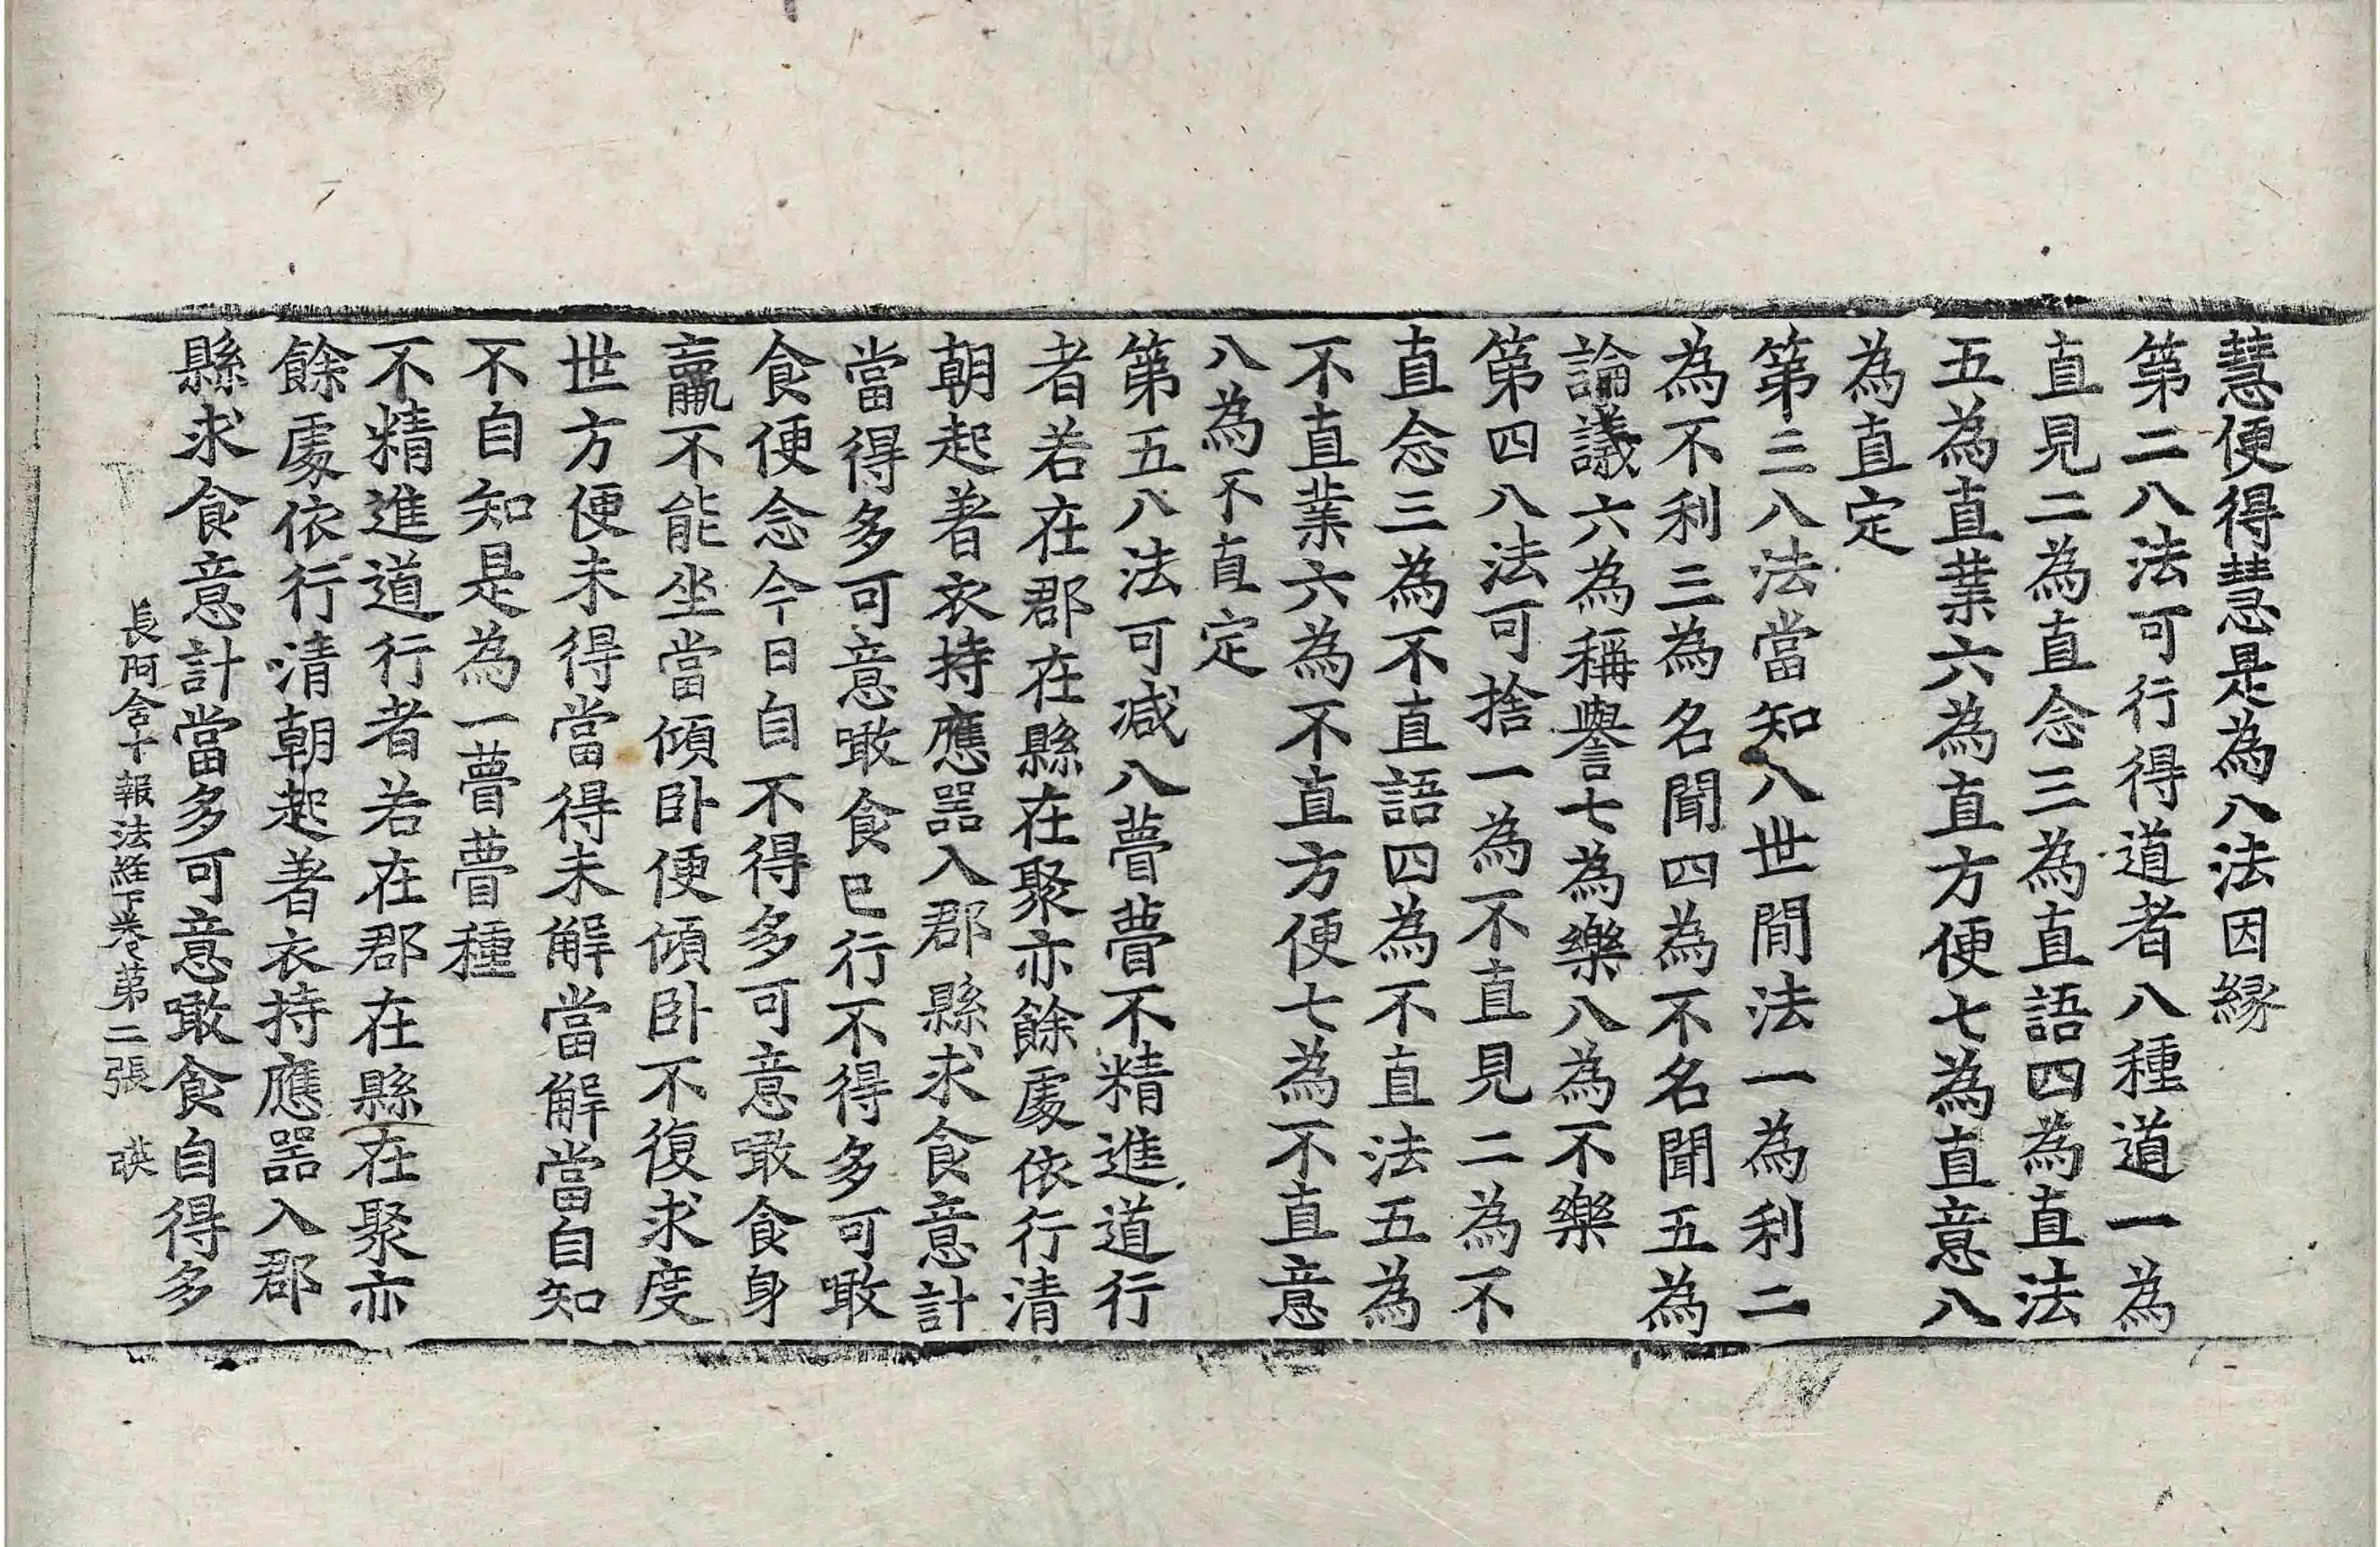 慧便得慧是為八法因緣
第二八法可行得道者八種道一為
直見二為直念三為直語四為直法
五為直業六為直方便七為直意八
為直定
第三八法當知八世間法一為利二
為不利三為名聞四為不名聞五為
論議六為稱譽七為樂八為不樂
第四八法可捨一為不直見二為不
直念三為不直語四為不直法五為
不直業六為不直方便七為不直意
八為不直定
第五八法可减八瞢瞢不精進道行
者若在郡在縣在聚亦餘處依行清
朝起著衣持應器入郡縣求食意計
當得多可意噉食已行不得多可噉
食便念今日自不得多可意噉食身
羸不能坐當傾卧便傾卧不復求度
世方便未得當得未解當解當自知
不自知是為一瞢瞢種
不精進道行者若在郡在縣在聚亦
餘處依行清朝起著衣持應器入郡
縣求食意計當多可意噉食自得多
長阿含十報法経下卷第二張